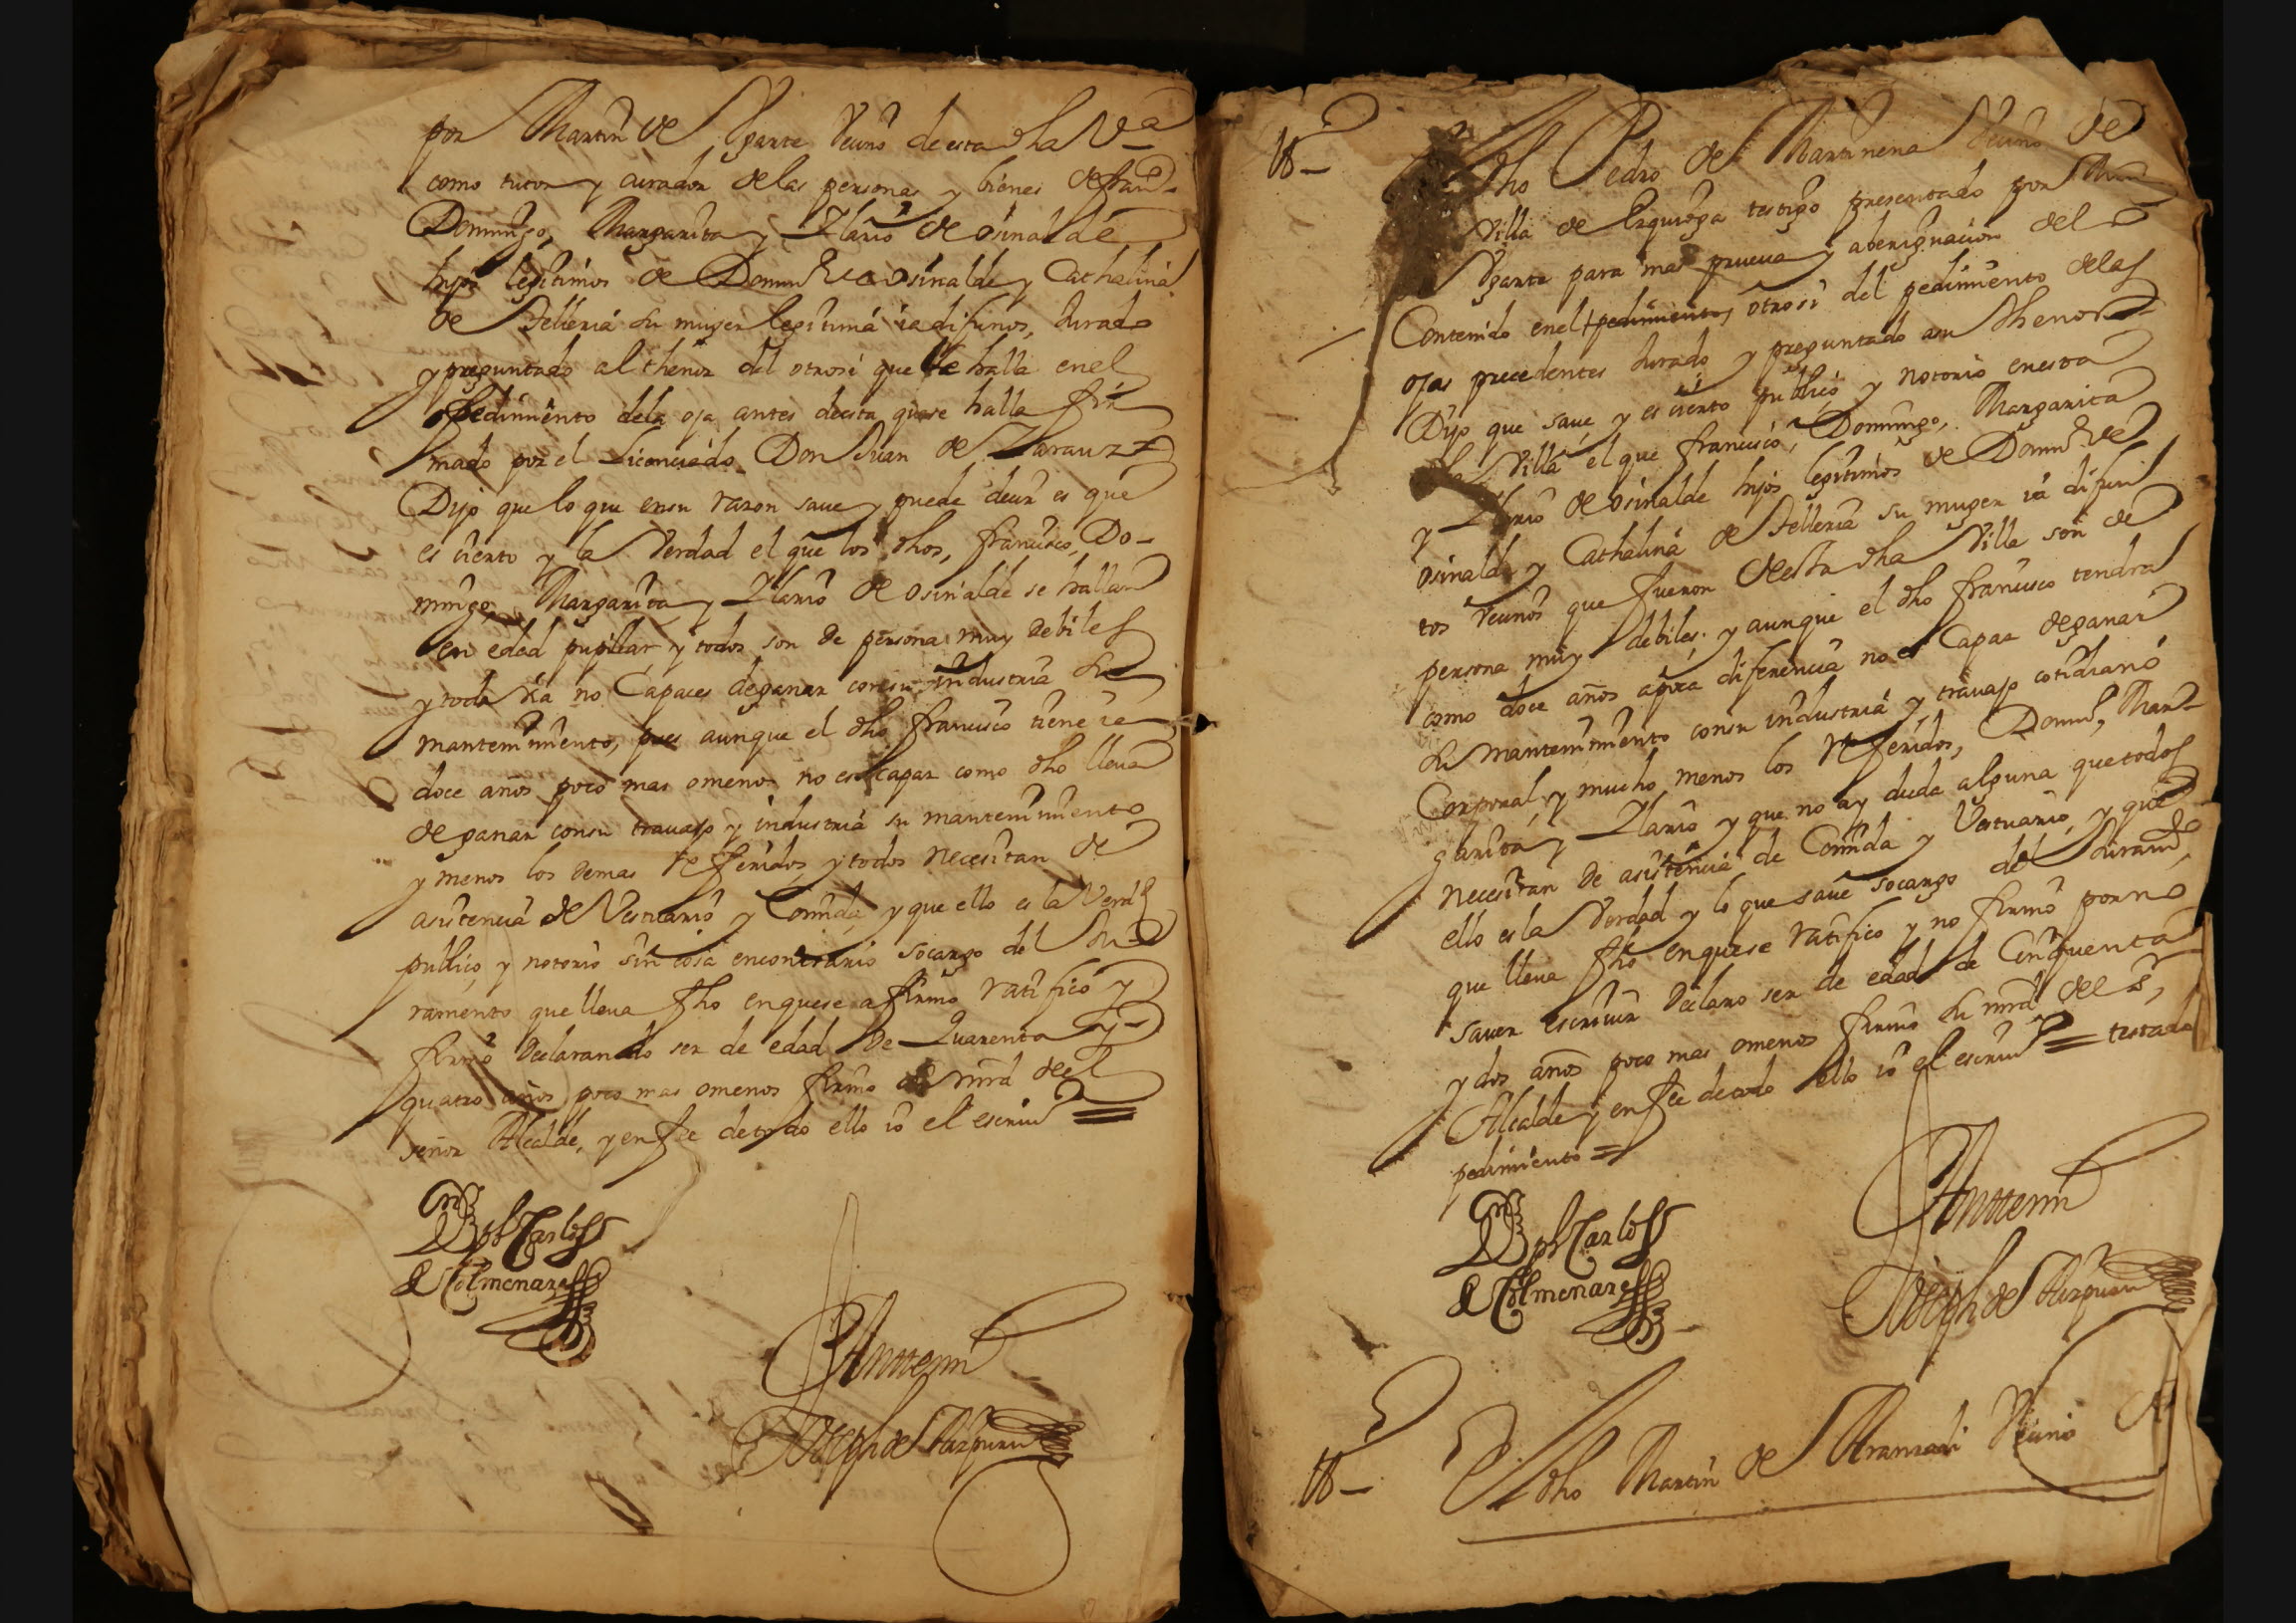 por Martin de Vgarte Veuno de esta dha Vª
como tutor y curador delas personas y bienes de fran.co
Domingo, Margarita y Ylario de osinalde
hijos legitimos de Domingo de osinalde y Cathalina
de Telleria su muger legitima ia difuntos, Jurado
y preguntado al thenor del otrosi que se halla enel
pedimiento dela oja antes de esta, que se halla fir
mado por el Licenciado Don Juan de Zarauz =
Dijo que lo que ensu razon saue y puede decir es que
es cierto y la Verdad el que los dhos, francisco, Do-
mingo, Margarita y Ylario de osinalde se hallan
en edad pupilar y todos son de persona muy debiles
y toda via no Capaces de ganar consu industria su
mantenimiento, pues aunque el dho francisco tiene ia
doce años poco mas omenos no es capaz como dho lleua
de ganar consu trauajo y industria su mantenimiento
y menos los demas referidos, y todos necesitan de
asistencia de Vestuario y Comida, y que ello es la Verdd
publico, y notorio sin cosa encontrario socargo del Ju-
ramento que lleua fho enquese afirmo ratifico y
firmo Declarando ser de edad de Quarenta y
quatro años poco mas omenos firmo su mrd del
señor Alcalde, y en fee de todo ello io el escriuo =
Dn Joph Carlos
de Colmenares
Antemi
Joseph de Aizpuru
tt.o - El dho Pedro de Martinena Veuno de
Villa de Ezquioga testigo presentado por Mrn
Vgarte para mas prueua y aberiguacion del
Contenido enel pedimiento, otrosi del pedimiento delas
ojas precedentes Jurado y preguntado asu thenor
Dijo que saue, y es cierto publico, y notorio enesta
dha Villa el que francisco, Domingo, Margarita
y Ylario de osinalde hijos legitimos de Domingo de
osinalde y Cathalina de Telleria su muger ia difun
tos Veunos que fueron desta dha Villa son de
persona muy debiles; y aunque el dho francisco tendra
como doce años apoca diferencia no es Capaz de ganar
su mantenimiento consu industria y trauajo cotidiano
Corporal, y mucho menos los referidos, Domgo, Mar-
garita y Ylario y que no ay duda alguna que todos
necesitan de asistencia de Comida y Vestuario, y que
ello es la Verdad y lo que saue socargo del Juramto
que lleua fho enquese ratifico y no firmo por no
sauer escriuir Declaro ser de edad de Cinquenta
y dos años poco mas omenos firmo su mrd del sr
Alcalde y en fee de todo ello io el escriuo = testado
pedimiento =
Dn Joph Carlos
de Colmenares
Antemi
Joseph de Aizpuru
tt.o - El dho Martin de Aramadi Veuno